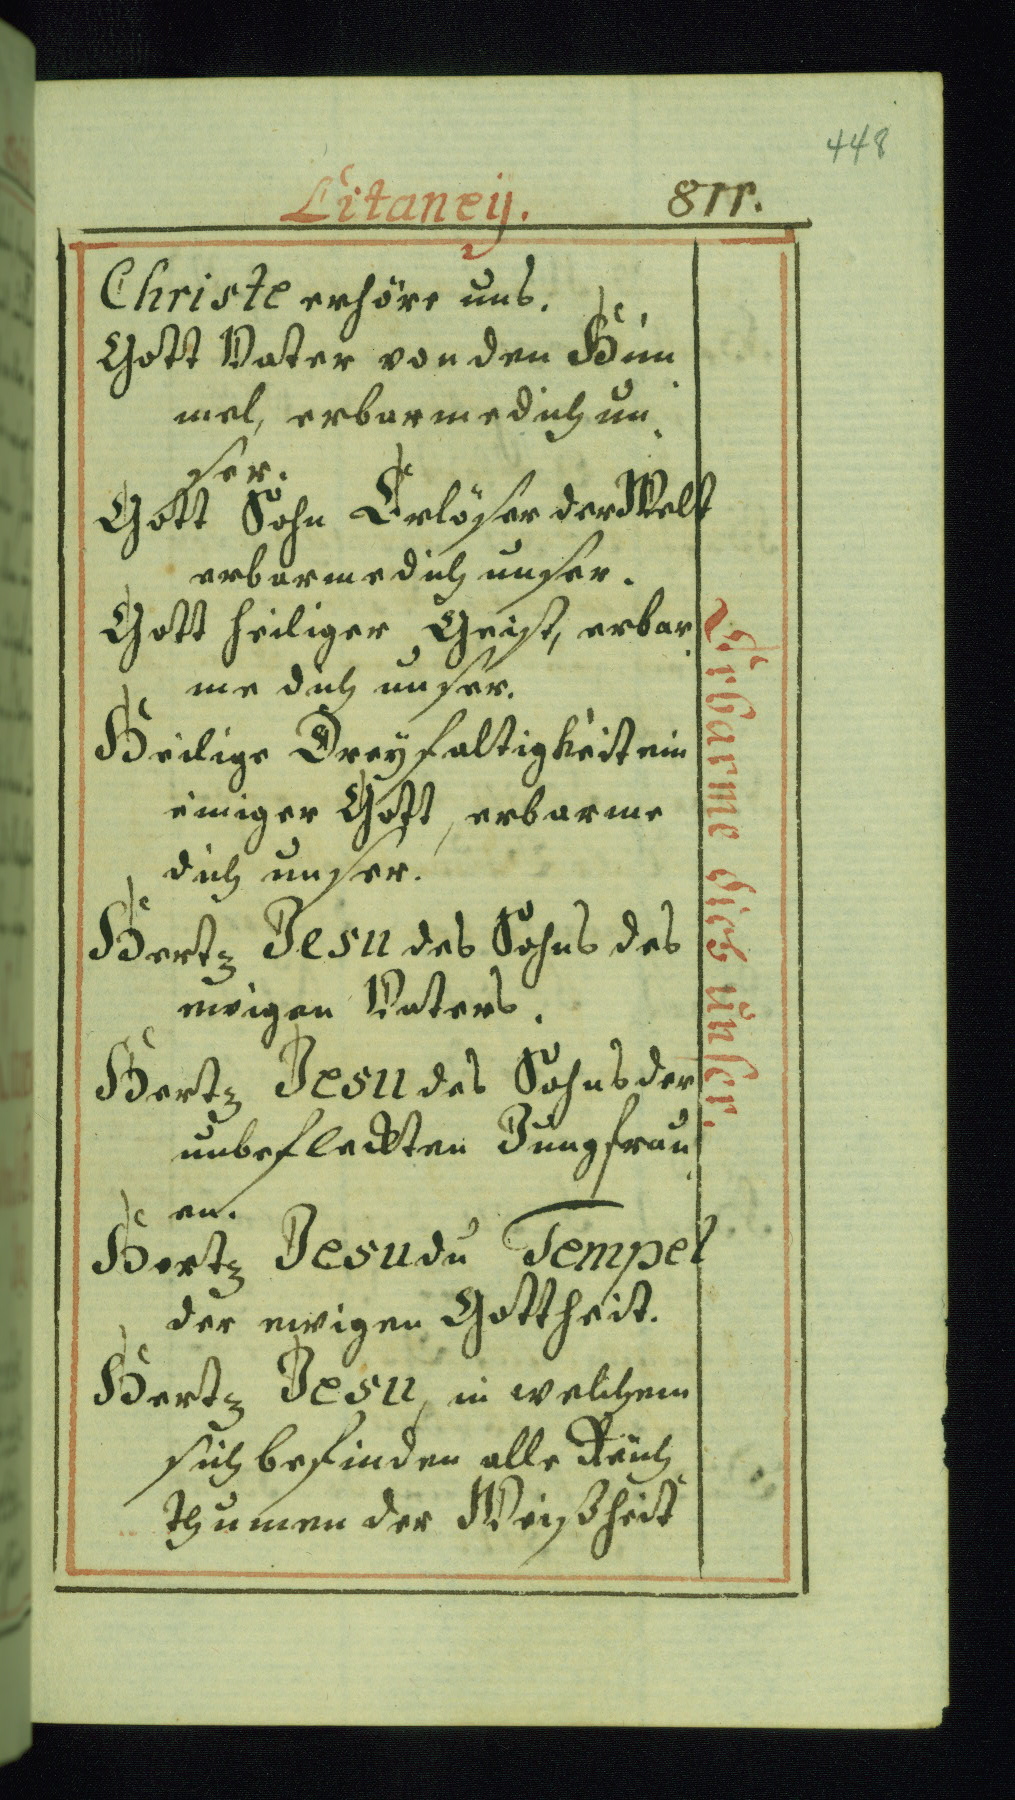 448
Litaney. 811.
Christe erhöre uns.
Gott Vater von den Him
mel, erbarme dich un
ser.
Gott Sohn Erlöser der Welt
erbarme dich unser.
Gott heiliger Geist, erbar
me dich unser.
Heilige Dreyfaltigkeit ein
einiger Gott, erbarme
dich unser.
Hertz Jesu des Sohns des
ewigen Vaters.
Hertz Jesu des Sohns der
unbefleckten Jungfrau
en.
Hertz Jesu du Tempel
der ewigen Gottheit.
Hertz Jesu, in welchem
sich befinden alle Reich
thumen der Weißheit
Erbarme dich unser.